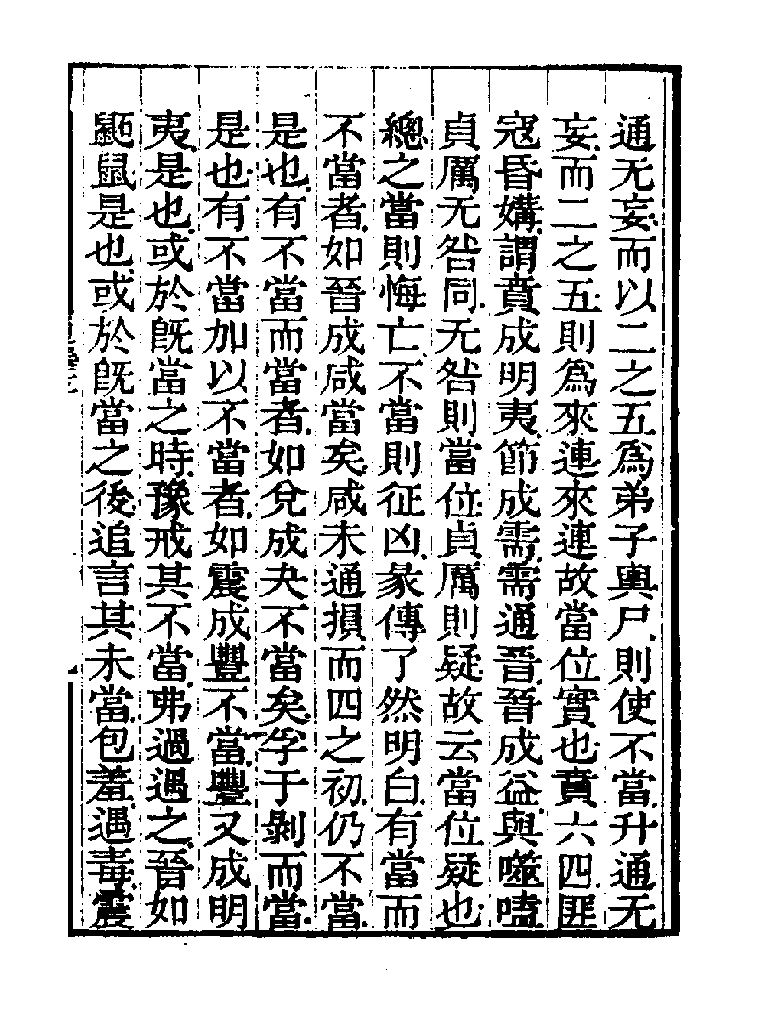 通无妄而以二之五爲弟子輿尸則使不當升通无
妄而二之五則爲來連來連故當位實也賁六四匪
寇昏媾謂賁成明夷節成需需通晉晉成益與噬嗑
貞厲无咎同无咎則當位貞厲則疑故云當位疑也
總之當則悔亡不當則征凶彖傳了然明白有當而
不當者如晉成咸當矣咸未通損而四之初仍不當
是也有不當而當者如兌成夬不當矣孚于剝而當
是也有不當加以不當者如震成豐不當豐又成明
夷是也或於旣當之時豫戒其不當弗過遇之晉如
鼫鼠是也或於旣當之後追言其未當包羞遇毒震